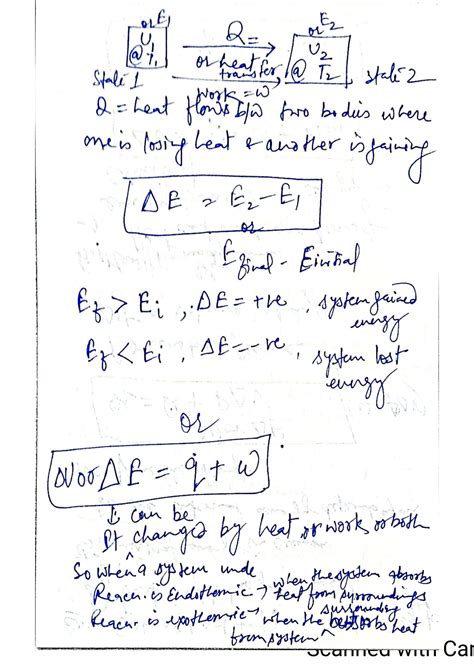 or E1 or E2
U1 Q = U2
@ T1 or heat transfer @ T2
State 1 work = w state 2
Q = heat flows b/w two bodies where
one is losing heat & another is gaining
ΔE = E2 - E1
or
Efinal - Einitial
Ef > Ei , ΔE = +ve , system gained
energy
Ef < Ei , ΔE = -ve , system lost
energy
or
ΔU or ΔE = q + w
↓ can be
It changed by heat or work or both
So when a system unde
Reacn. is Endothermic → when the system absorbs
heat from surroundings
Reacn. is exothermic → when the surrounding absorbs heat
from system
Scanned with Car